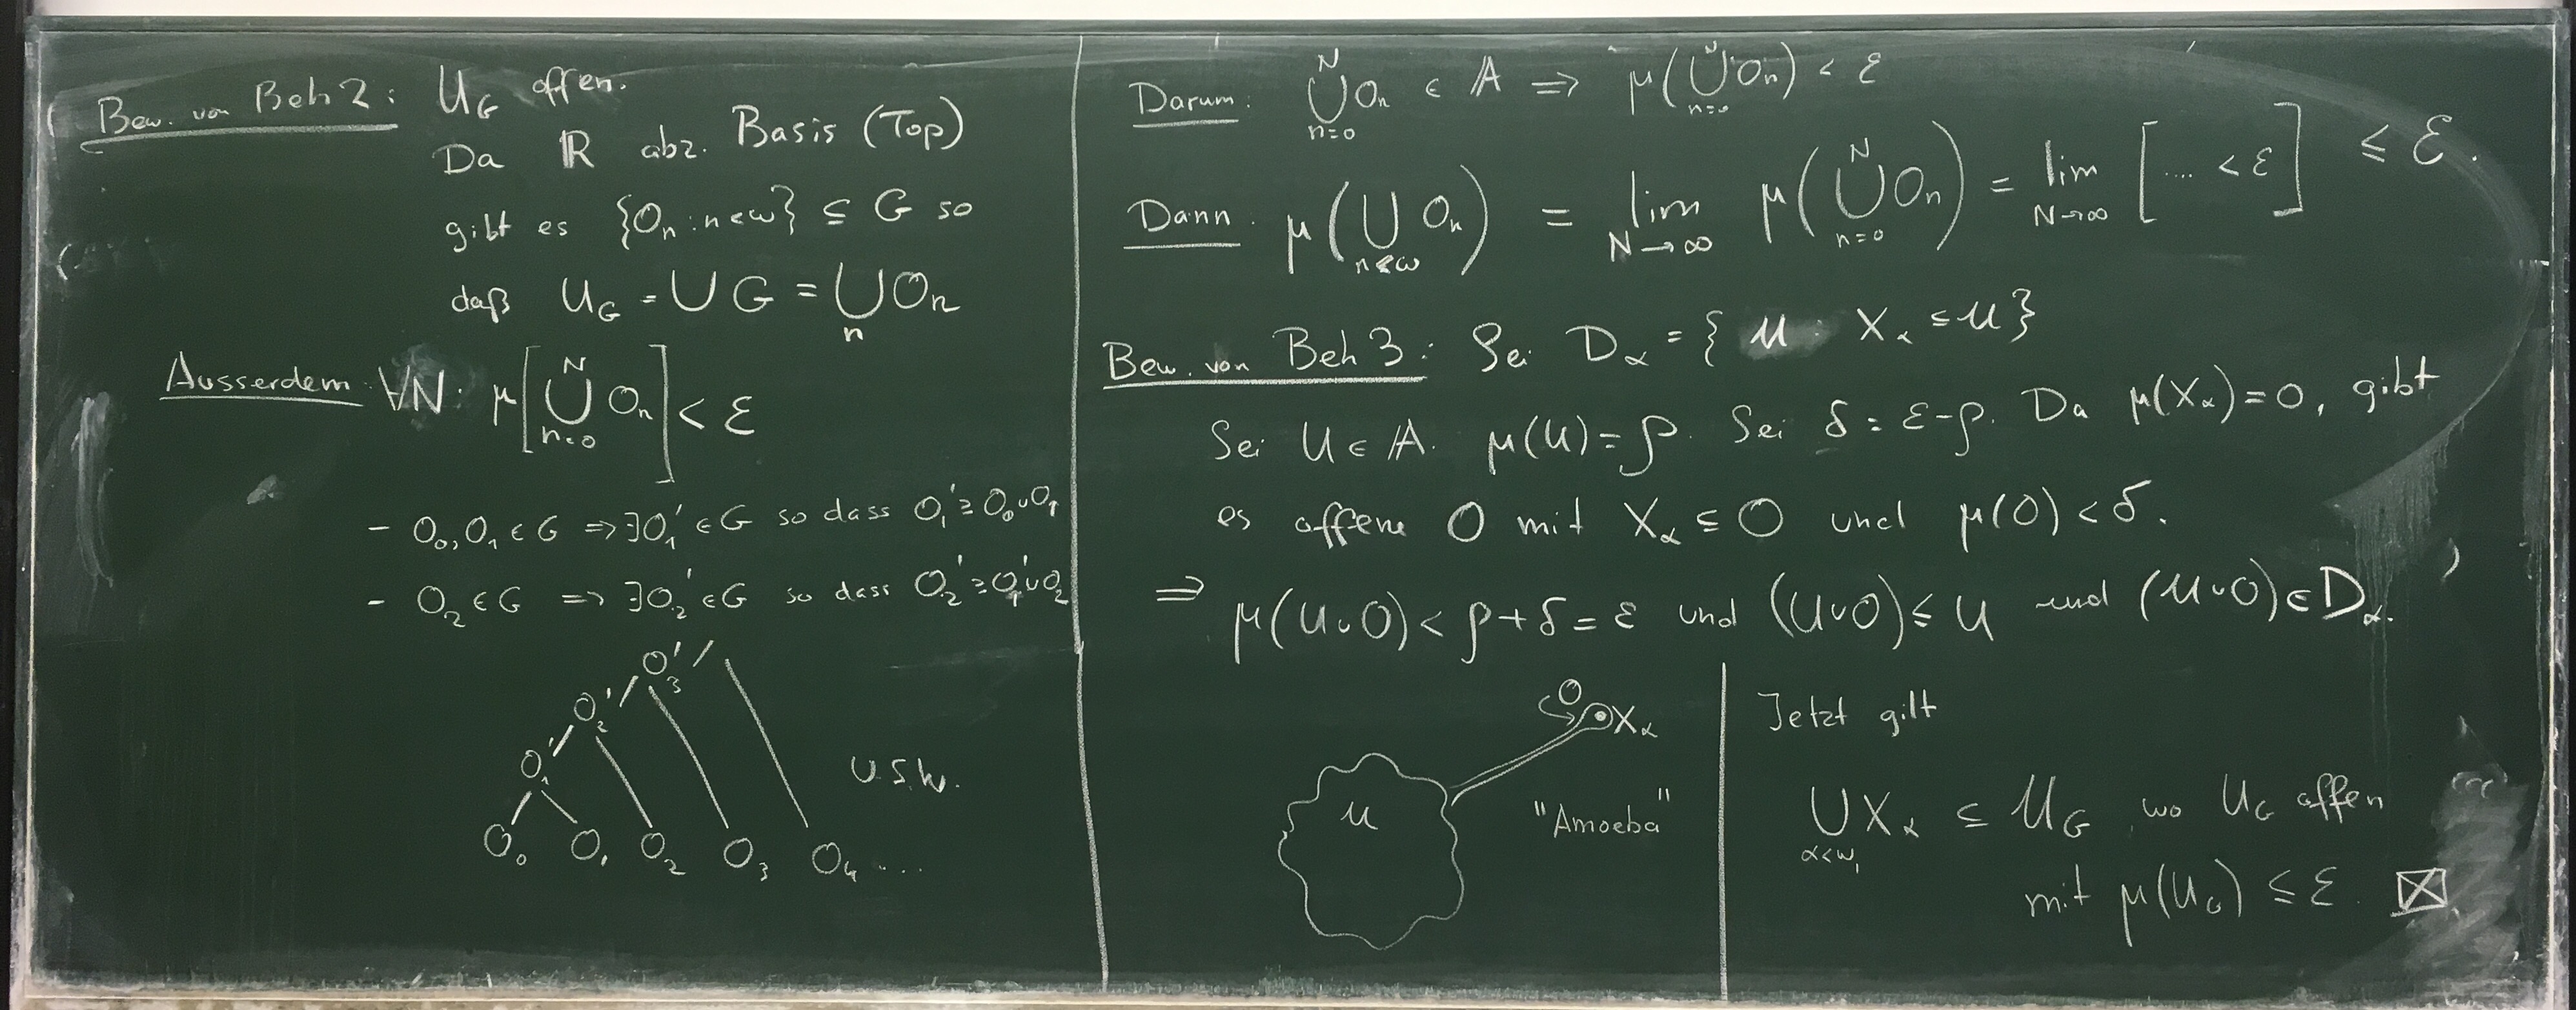 Bew. von Beh 2: U_G offen.
Da ℝ abz. Basis (Top)
gibt es {O_n : n ∈ ω} ⊆ G so
daß U_G = ⋃G = ⋃_n O_n
Ausserdem ∀N: μ[⋃_{n=0}^{N} O_n] < ε
- O_0, O_1 ∈ G ⇒ ∃O_1' ∈ G so dass O_1' ⊇ O_0 ∪ O_1
- O_2 ∈ G ⇒ ∃O_2' ∈ G so dass O_2' ⊇ O_1' ∪ O_2
O_3'
O_2'
O_1'
u.s.w.
O_0 O_1 O_2 O_3 O_4 ....
Darum: ⋃_{n=0}^{N} O_n ∈ 𝔸 ⇒ μ(⋃_{n=0}^{N} O_n) < ε
Dann. μ(⋃_{n∈ω} O_n) = lim_{N→∞} μ(⋃_{n=0}^{N} O_n) = lim_{N→∞} [.... < ε] ≤ ε.
Bew. von Beh 3: Sei D_α = {U : X_α ⊆ U}
Sei U ∈ 𝔸. μ(U) = ρ. Sei δ = ε-ρ. Da μ(X_α) = 0, gibt
es offene O mit X_α ⊆ O und μ(O) < δ.
⇒ μ(U∪O) < ρ+δ = ε und (U∪O) ≤ U und (U∪O) ∈ D_α.
O
X_α
U
"Amoeba"
Jetzt gilt
⋃_{α<ω_1} X_α ⊆ U_G, wo U_G offen
mit μ(U_G) ≤ ε. ☒